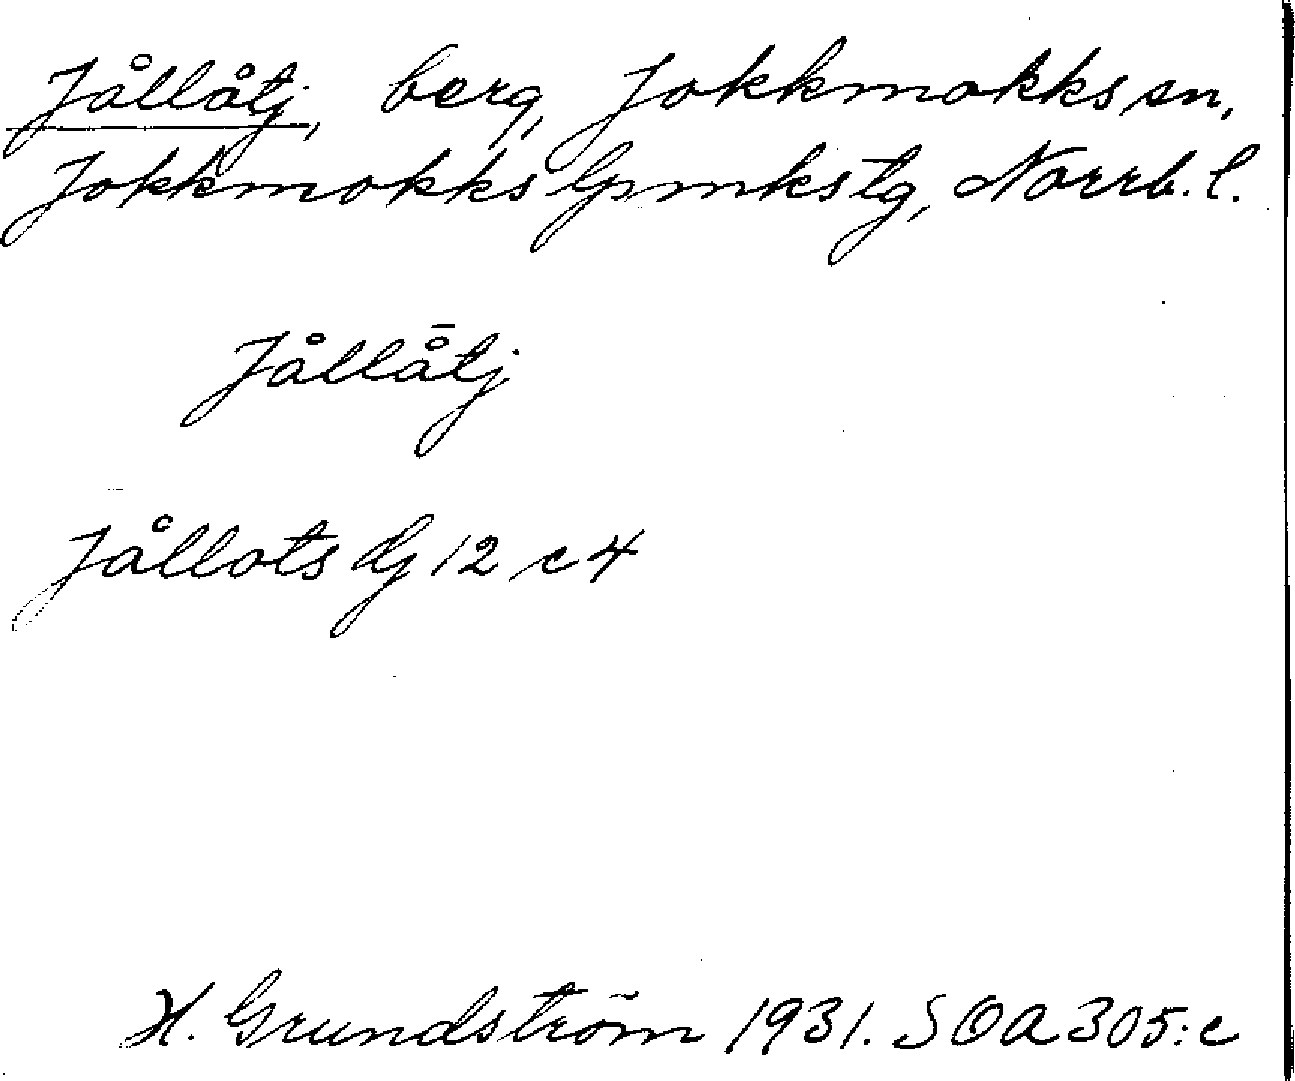 Jållåtj, berg, Jokkmokks sn,
Jokkmokks lpmkstg, Norrb. l.
Jållå̄tj
Jållots dj 12 c 4
H. Grundström 1931. SOA 305:c